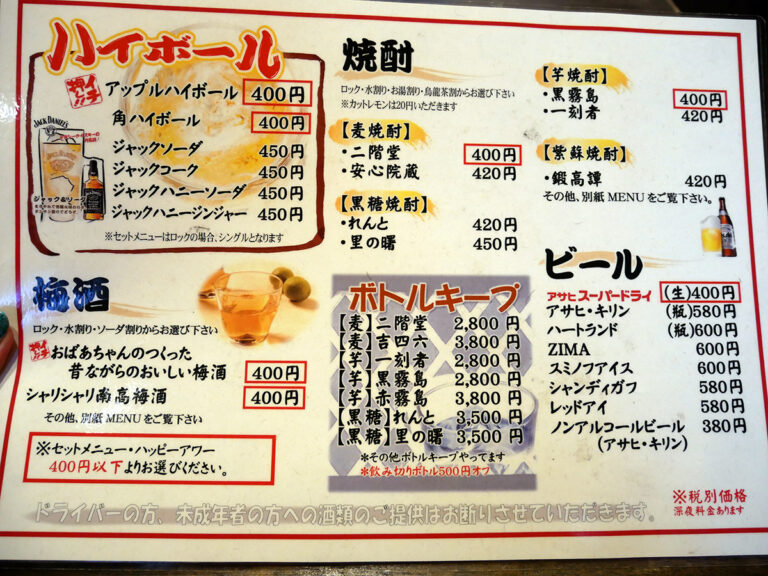 ハイボール
イチ押し!!
アップルハイボール 400円
角ハイボール 400円
ジャックソーダ 450円
ジャックコーク 450円
ジャックハニーソーダ 450円
ジャックハニージンジャー 450円
※セットメニューはロックの場合、シングルとなります
JACK DANIEL'S
ジャック&ソーダ
梅酒
ロック・水割り・ソーダ割りからお選び下さい
イチ押し!!
おばあちゃんのつくった
昔ながらのおいしい梅酒 400円
シャリシャリ南高梅酒 400円
その他、別紙MENUをご覧下さい
※セットメニュー・ハッピーアワー
400円以下よりお選びください。
焼酎
ロック・水割り・お湯割り・烏龍茶割からお選び下さい
※カットレモンは20円いただきます
【麦焼酎】
・二階堂 400円
・安心院蔵 420円
【黒糖焼酎】
・れんと 420円
・里の曙 450円
【芋焼酎】
・黒霧島 400円
・一刻者 420円
【紫蘇焼酎】
・鍛高譚 420円
その他、別紙MENUをご覧下さい。
ボトルキープ
【麦】二階堂 2,800円
【麦】吉四六 3,800円
【芋】一刻者 2,800円
【芋】黒霧島 2,800円
【芋】赤霧島 3,800円
【黒糖】れんと 3,500円
【黒糖】里の曙 3,500円
*その他ボトルキープやってます
*飲み切りボトル500円オフ
ビール
アサヒスーパードライ (生)400円
アサヒ・キリン (瓶)580円
ハートランド (瓶)600円
ZIMA 600円
スミノフアイス 600円
シャンディガフ 580円
レッドアイ 580円
ノンアルコールビール 380円
(アサヒ・キリン)
※税別価格
深夜料金あります
ドライバーの方、未成年者の方への酒類のご提供はお断りさせていただきます。